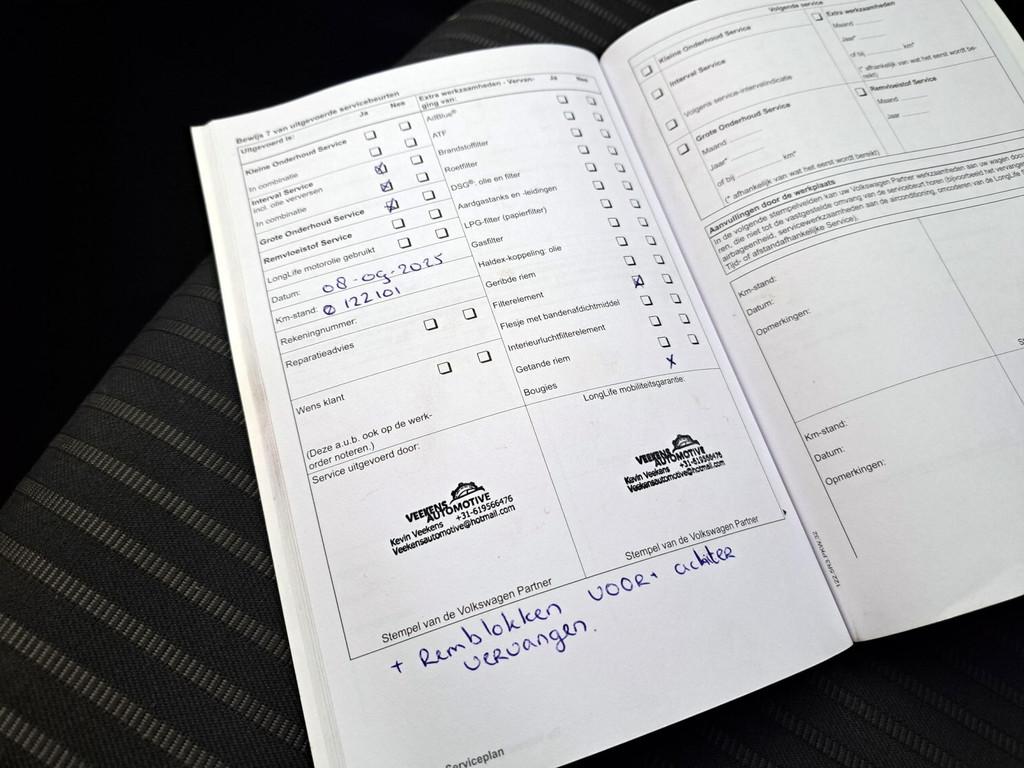 Bewijs 7 van uitgevoerde servicebeurten
Uitgevoerd is:
Ja
Nee
Kleine Onderhoud Service
In combinatie
Interval Service
incl. olie verversen
In combinatie
Grote Onderhoud Service
Remvloeistof Service
LongLife motorolie gebruikt
Datum: 08-09-2025
Km-stand: 122101
Rekeningnummer:
Reparatieadvies
Wens klant
(Deze a.u.b. ook op de werk-
order noteren.)
Extra werkzaamheden - Vervan-
ging van:
Ja
Nee
AdBlue®
ATF
Brandstoffilter
Roetfilter
DSG®: olie en filter
Aardgastanks en -leidingen
LPG-filter (papierfilter)
Gasfilter
Haldex-koppeling: olie
Geribde riem
Filterelement
Flesje met bandenafdichtmiddel
Interieurluchtfilterelement
Getande riem
Bougies
X
Service uitgevoerd door:
VEEKENS
AUTOMOTIVE
Kevin Veekens +31-619566476
Veekensautomotive@hotmail.com
Stempel van de Volkswagen Partner
LongLife mobiliteitsgarantie:
VEEKENS
AUTOMOTIVE
Kevin Veekens +31-619566476
Veekensautomotive@hotmail.com
Stempel van de Volkswagen Partner
+ Remblokken VOOR+ achter
vervangen.
Serviceplan
Volgende service
Kleine Onderhoud Service
Interval Service
Volgens service-intervalindicatie
Grote Onderhoud Service
Maand
Jaar*
of bij km*
(* afhankelijk van wat het eerst wordt bereikt)
Extra werkzaamheden
Maand
Jaar*
of bij km*
(* afhankelijk van wat het eerst wordt be-
reikt)
Remvloeistof Service
Maand
Jaar
Aanvullingen door de werkplaats
In de volgende stempelvelden kan uw Volkswagen Partner werkzaamheden aan uw wagen
ren, die niet tot de vastgestelde omvang van de servicebeurt horen (bijvoorbeeld het vervangen
airbageenheid, servicewerkzaamheden aan de airconditioning, omcoderen van de LongLife
Tijd- of afstandafhankelijke Service).
Km-stand:
Datum:
Opmerkingen:
Km-stand:
Datum:
Opmerkingen: